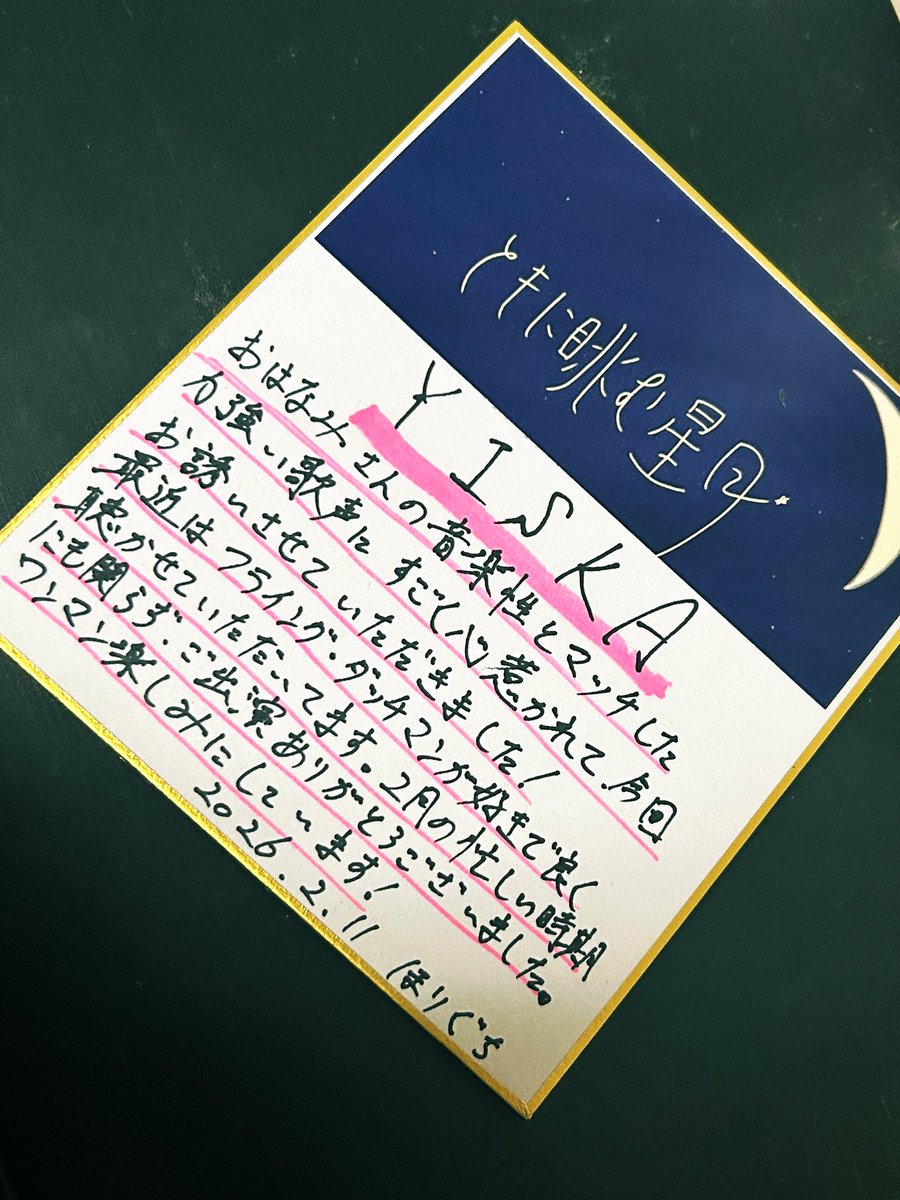 ともに眺む星日
YISKA
おはなみさんの音楽性とマッチした
力強い歌声にすごく心惹かれて今回
お誘いさせていただきました！
最近はフライング・ダッチマンが好きで良く
聴かせていただいてます。2月の忙しい時期
にも関らず、ご出演ありがとうございました。
ワンマン楽しみにしています！
2026.2.11 ほりぐち